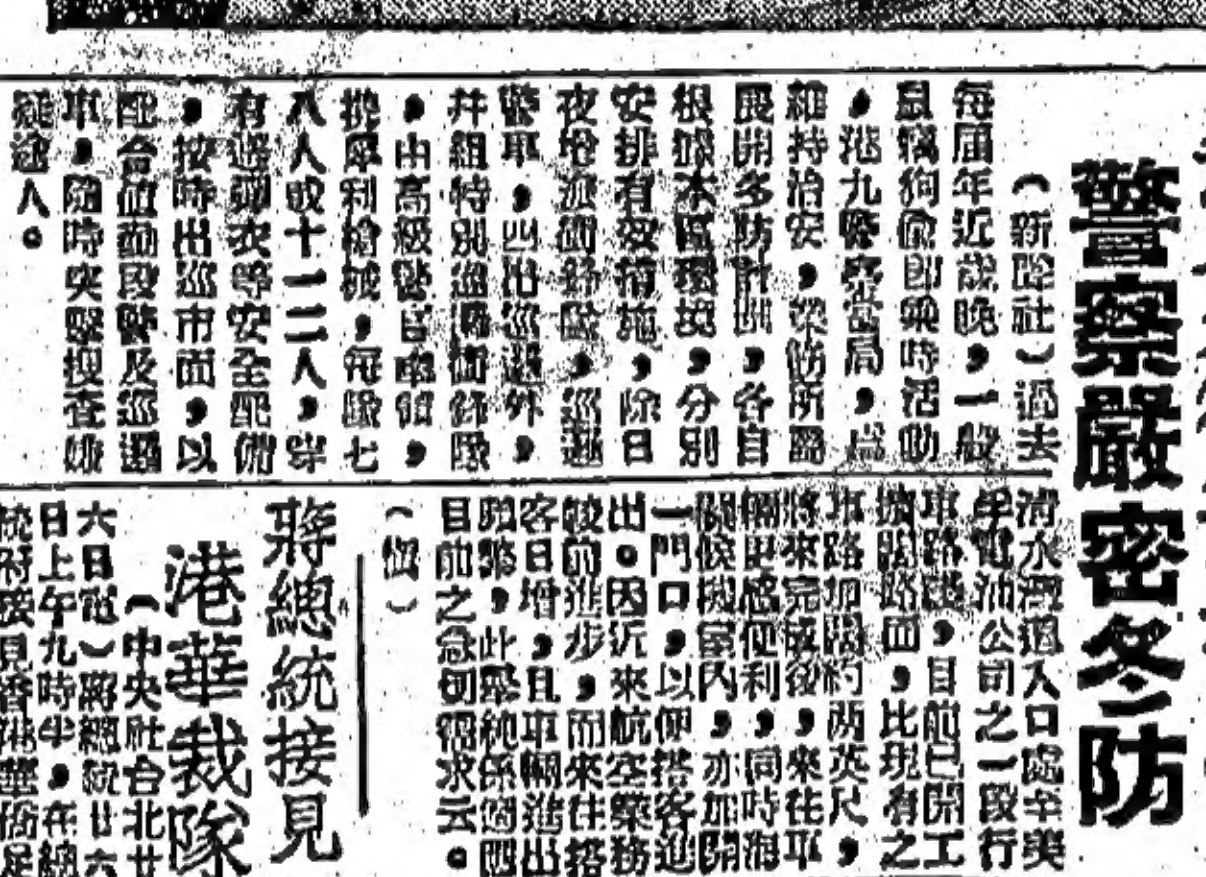 警察嚴密冬防
（新聞社）過去
每屆年近歲晚，一般
鼠竊狗偷即乘時活動
，港九警察當局，為
維持治安，
展開冬防計劃，各自
根據本區環境，分別
安排有效措施，除日
夜增派街路段，巡邏
警車，四出巡邏外，
并組特別巡邏街隊
，由高級警官率領，
携犀利槍械，每隊七
八人或十一二人，
有避彈衣等安全配備
，按時出巡市面，以
配合值勤段警及巡邏
車，隨時突擊搜查嫌
疑途人。
清水灣道入口處至美
孚電油公司之一段行
車路，目前已開工
擴闊路面，比現有之
車路加闊約两英尺，
將來完成後，來往車
輛更感便利，同時
候機室內，亦加開
一門口，以便搭客進
出。因近來航空業務
較前進步，而來往搭
客日增，且車輛進出
頻繁，此舉純係適
目前之急切需求云。
（恒）
蔣總統接見
港華裁隊
（中央社台北廿
六日電）蔣總統廿六
日上午九時半，在總
統府接見香港華僑足